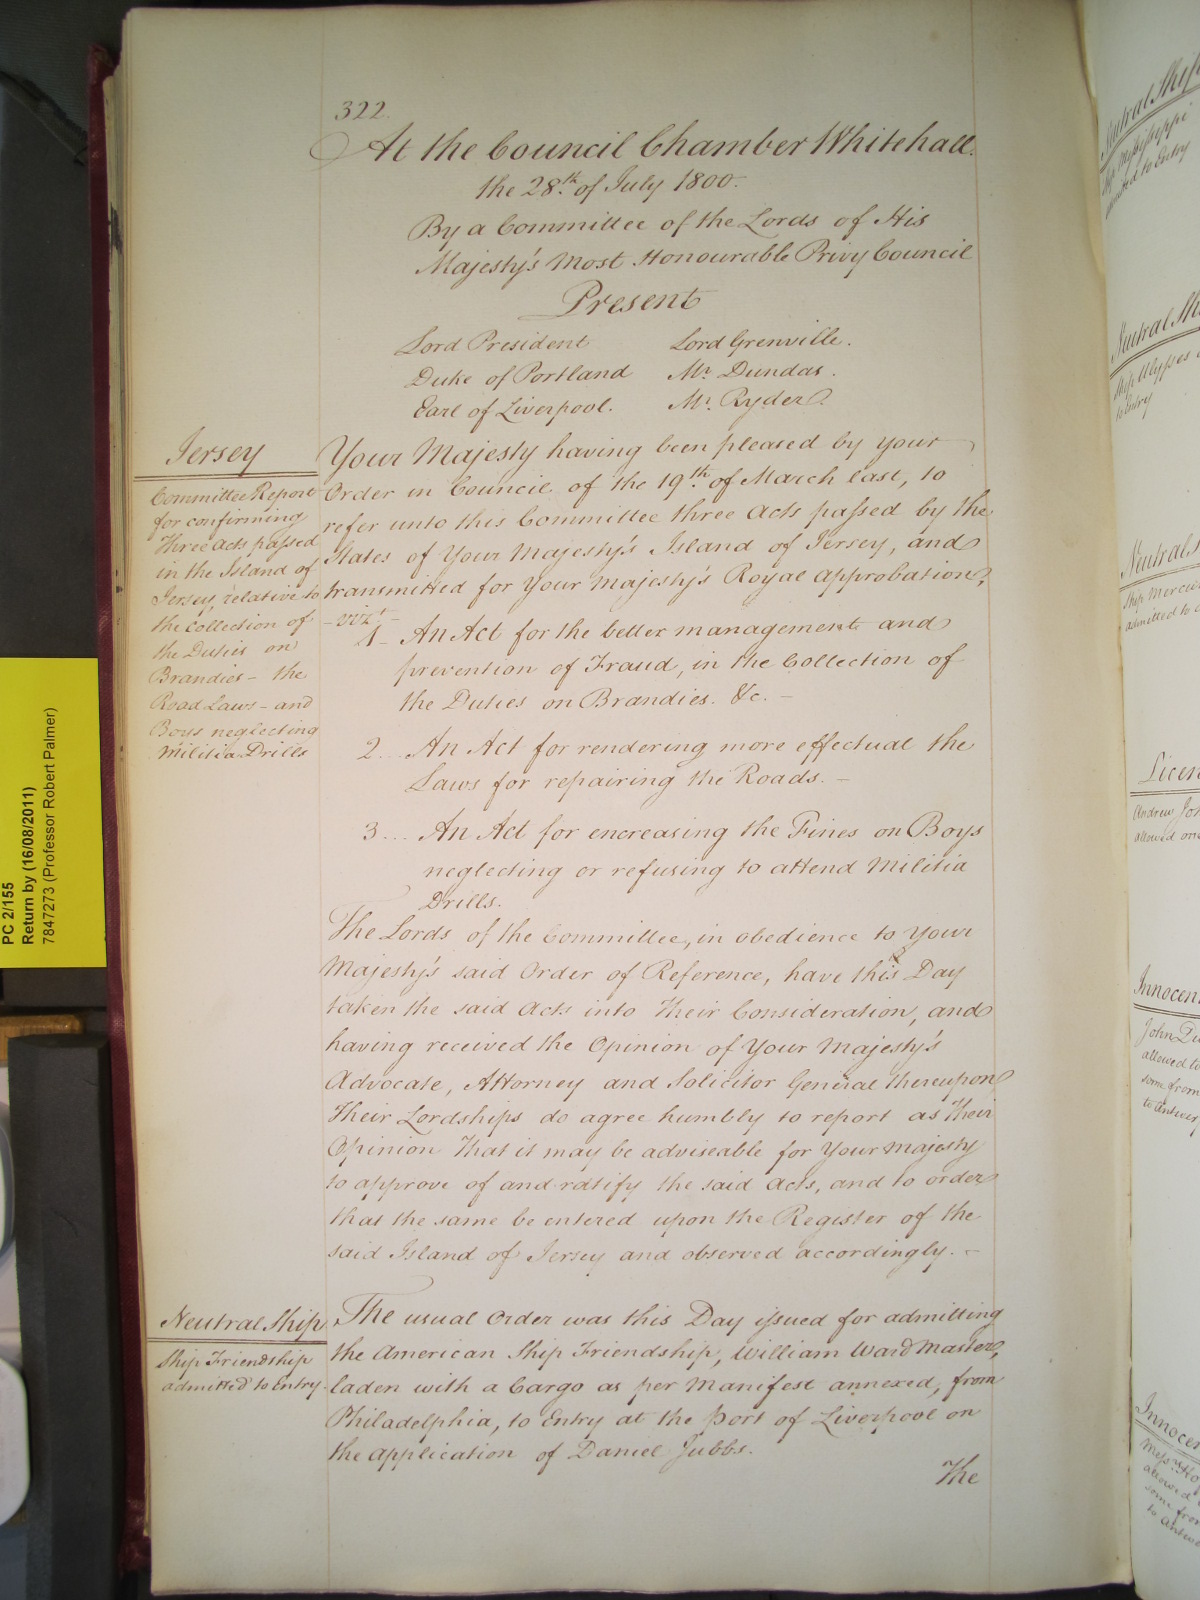 322.
At the Council Chamber Whitehall.
the 28th. of July 1800.
By a Committee of the Lords of His
Majesty's Most Honourable Privy Council
Present
Lord President Lord Grenville.
Duke of Portland Mr. Dundas.
Earl of Liverpool. Mr. Ryder.
Jersey
Committee Report
for confirming
Three Acts passed
in the Island of
Jersey, relative to
the collection of
the Duties on
Brandies - the
Road Laws - and
Boys neglecting
Militia Drills
Your Majesty having been pleased by your
Order in Council of the 19th. of March last, to
refer unto this Committee three Acts passed by the
States of Your Majesty's Island of Jersey, and
transmitted for Your Majesty's Royal Approbation,
- vizt. -
1 - An Act for the better management and
prevention of Fraud, in the Collection of
the Duties on Brandies. &c. -
2... An Act for rendering more effectual the
Laws for repairing the Roads. -
3... An Act for encreasing the Fines on Boys
neglecting or refusing to attend Militia
Drills.
The Lords of the Committee, in obedience to Your
Majesty's said Order of Reference, have this Day
taken the said Acts into Their Consideration, and
having received the Opinion of Your Majesty's
Advocate, Attorney and Solicitor General thereupon
Their Lordships do agree humbly to report as Their
Opinion That it may be adviseable for Your Majesty
to approve of and ratify the said Acts, and to order
that the same be entered upon the Register of the
said Island of Jersey and observed accordingly. -
Neutral Ship
Ship Friendship
admitted to Entry.
The usual Order was this Day issued for admitting
the American Ship Friendship, William Ward Master,
laden with a Cargo as per Manifest annexed, from
Philadelphia, to Entry at the Port of Liverpool on
the Application of Daniel Jubbs.
The
PC 2/155
Return by (16/08/2011)
7847273 (Professor Robert Palmer)
Neutral Ship
Ship Mississippi
to Entry
Neutral
Ship Ulysses
to Entry
Neutral
Ship
admitted to
Andrew
allowed
John
allowed to
some from
to
allowed
some from
to